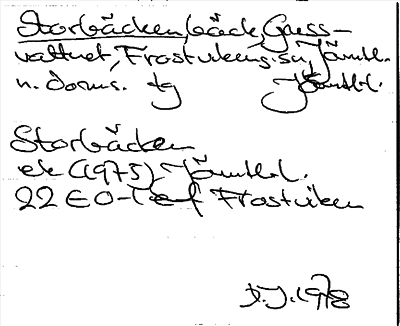 Storbäcken, bäck, Guss-
vattnet, Frostvikens sn, Jämtl.
n. doms. tg Jämtl.l.
Storbäcken
ek (1975) Jämtl.l.
22 E 0-1 ef Frostviken
1978